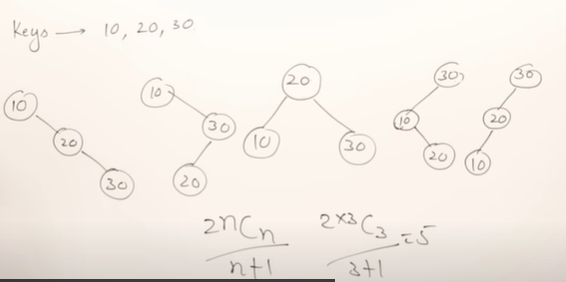 Keys → 10, 20, 30
10 20 30
10 30 20
20 10 30
30 10 20
30 20 10
2nCn / n+1
2×3C3 / 3+1 =5